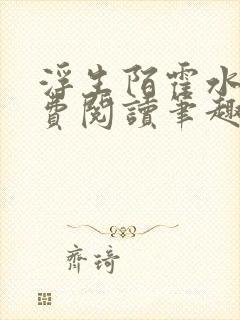 浮生陌霍水
費閱讀筆趣
齊琦